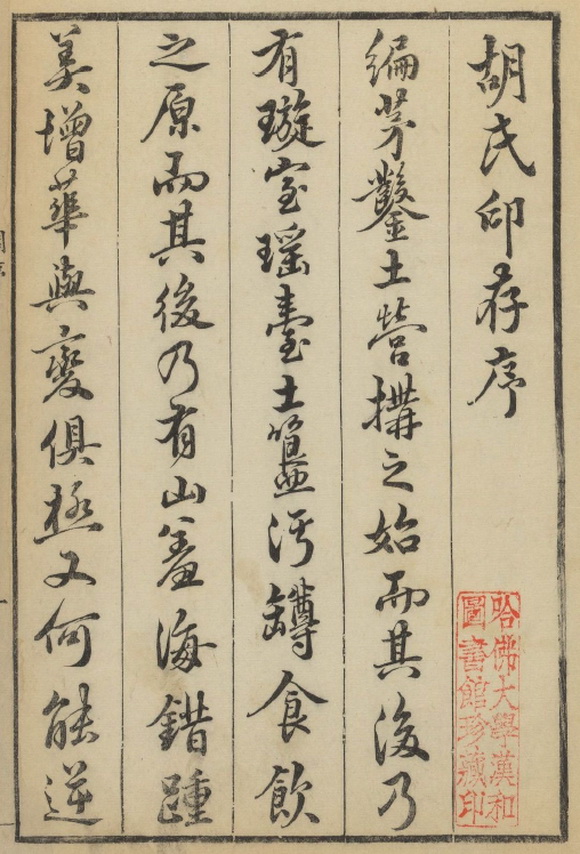 胡氏印存序
編茅鑿土營搆之始而其後乃
有璇室瑶臺土簋汙罇食飲
之原而其後乃有山羞海錯踵
美增華與變俱極又何能逆
哈佛大學漢和
圖書館珍藏印